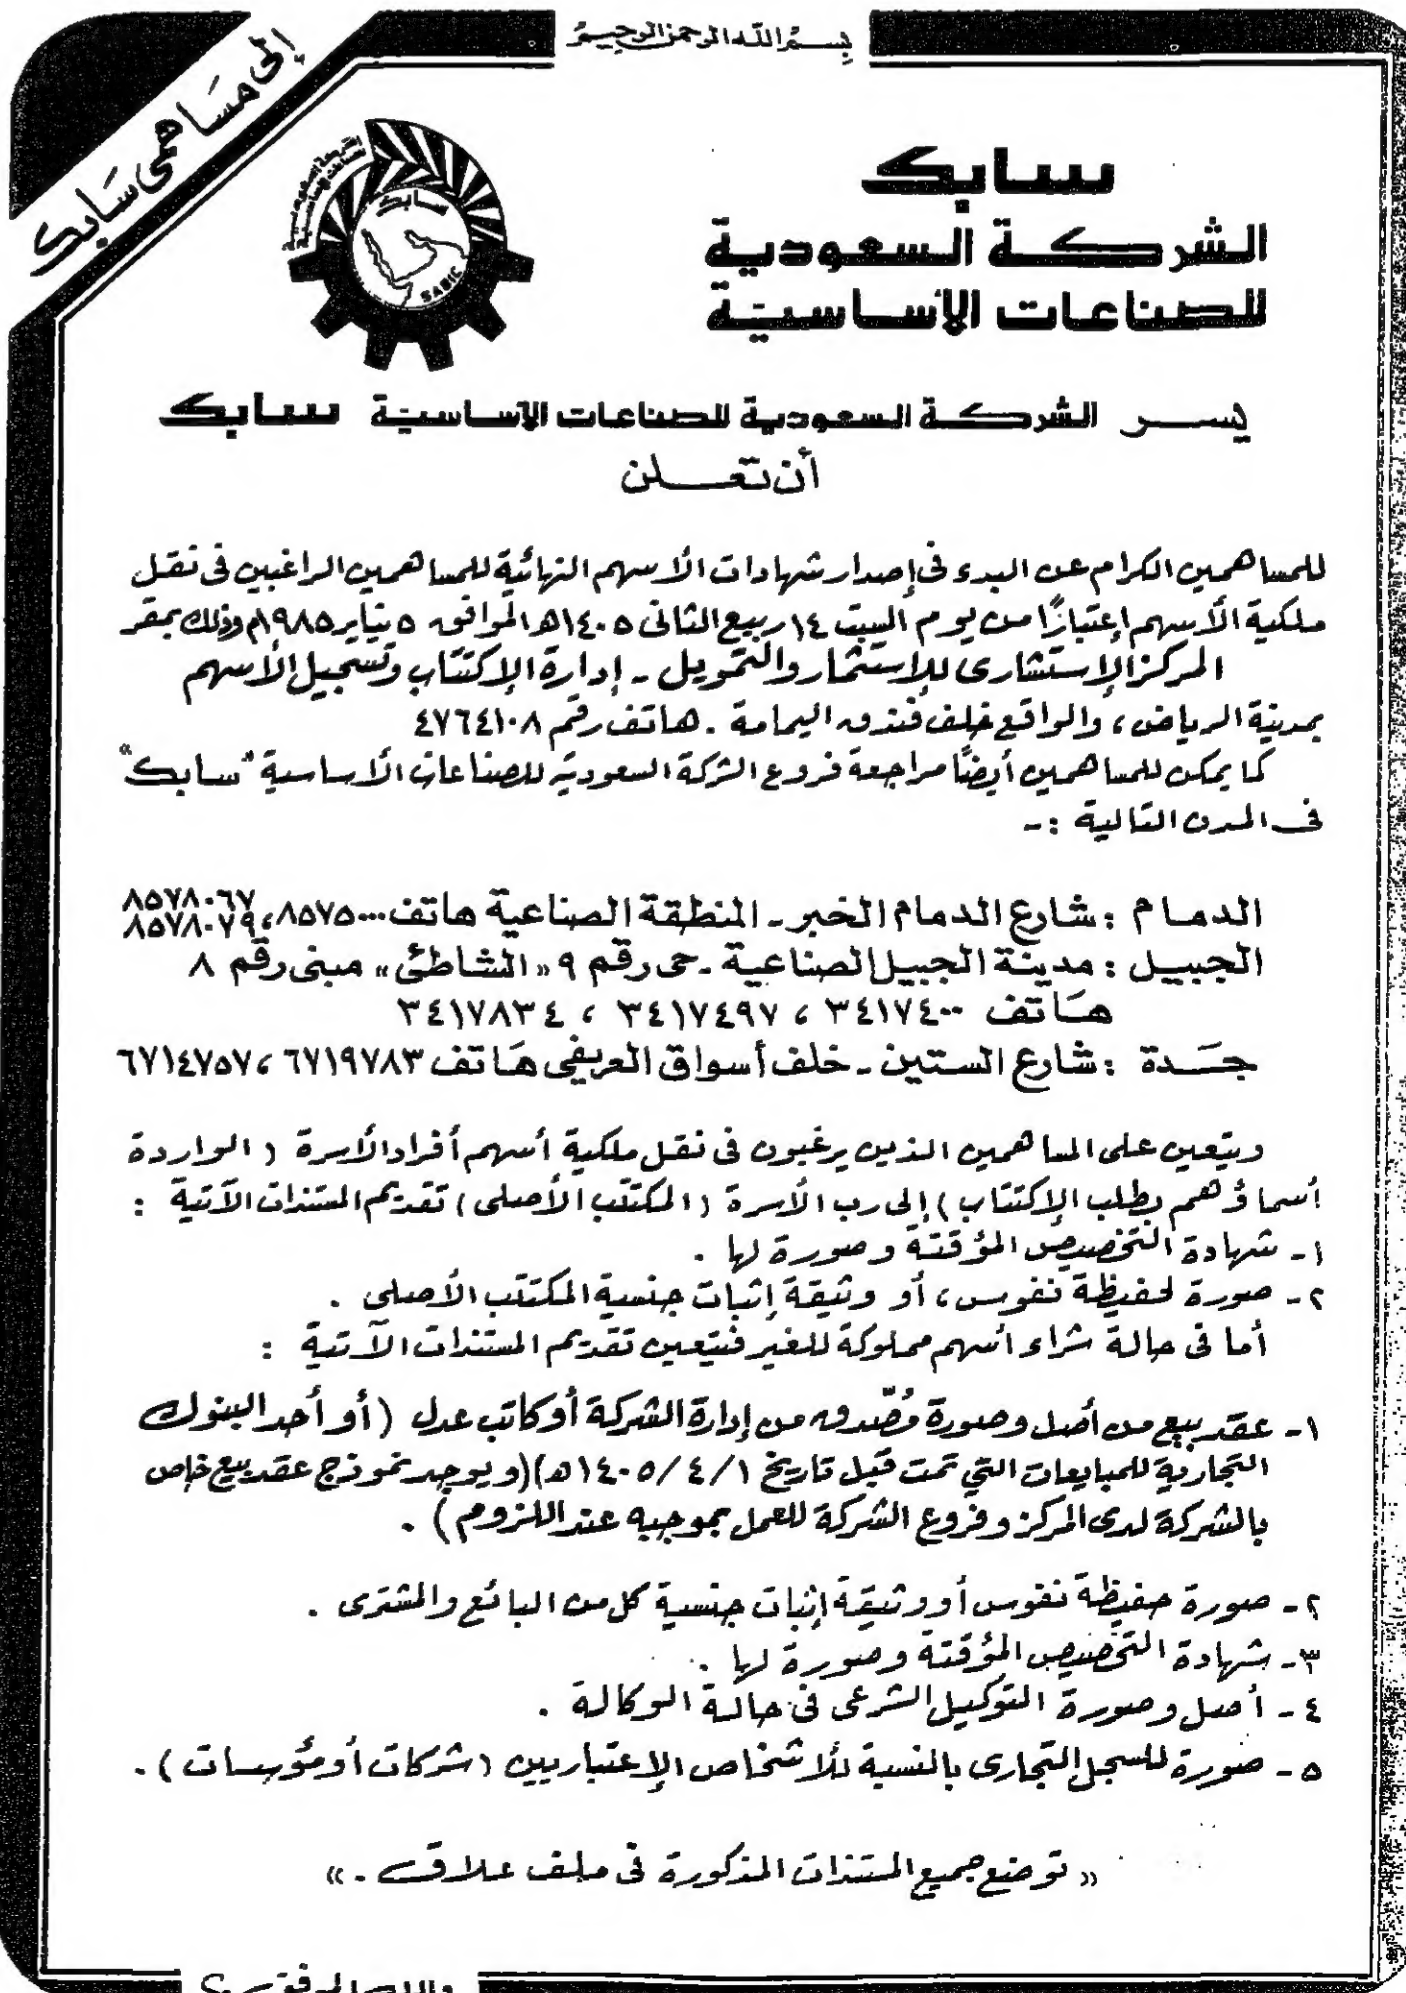 بسم الله الرحمن الرحيم
إلى مساهمى سابك
سابك
الشركة السعودية
للصناعات الأساسية
سابك
SABIC
يسر الشركة السعودية للصناعات الأساسية سابك
أن تعلن
للمساهمين الكرام عن البدء فى إصدار شهادات الأسهم النهائية للمساهمين الراغبين فى نقل
ملكية الأسهم إعتبارًا من يوم السبت ١٤ ربيع الثانى ١٤٠٥هـ الموافق ٥ يناير ١٩٨٥م وذلك بمقر
المركز الإستشارى للإستثمار والتمويل - إدارة الإكتتاب وتسجيل الأسهم
بمدينة الرياض، والواقع خلف فندق اليمامة . هاتف رقم ٤٧٦٤١٠٨
كما يمكن للمساهمين أيضًا مراجعة فروع الشركة السعودية للصناعات الأساسية "سابك"
فى المدن التالية :-
الدمام : شارع الدمام الخبر - المنطقة الصناعية هاتف ٨٥٧٥٠٠٠، ٨٥٧٨٠٦٧
٨٥٧٨٠٧٩
الجبيل : مدينة الجبيل الصناعية - حى رقم ٩ «الشاطئ» مبنى رقم ٨
هاتف ٣٤١٧٤٠٠ ، ٣٤١٧٤٩٧ ، ٣٤١٧٨٣٤
جدة : شارع الستين - خلف أسواق العريفي هاتف ٦٧١٩٧٨٣ ، ٦٧١٤٧٥٧
ويتعين على المساهمين الذين يرغبون فى نقل ملكية أسهم أفراد الأسرة ( الواردة
أسماؤهم بطلب الإكتتاب ) إلى رب الأسرة ( المكتتب الأصلى ) تقديم المستندات الآتية :
١- شهادة التخصيص المؤقتة وصورة لها .
٢- صورة لحفيظة نفوس، أو وثيقة إثبات جنسية المكتتب الأصلى .
أما فى حالة شراء أسهم مملوكة للغير فيتعين تقديم المستندات الآتية :
١- عقد بيع من أصل وصورة مُصّدق من إدارة الشركة أو كاتب عدل ( أو أحد البنوك
التجارية للمبايعات التي تمت قبل تاريخ ١/ ٤/ ١٤٠٥هـ)(ويوجد نموذج عقد بيع خاص
بالشركة لدى المركز وفروع الشركة للعمل بموجبه عند اللزوم ) .
٢- صورة حفيظة نفوس أو وثيقة إثبات جنسية كل من البائع والمشترى .
٣- شهادة التخصيص المؤقتة وصورة لها .
٤- أصل وصورة التوكيل الشرعى فى حالة الوكالة .
٥- صورة للسجل التجارى بالنسبة للأشخاص الإعتباريين ( شركات أو مؤسسات ) .
« توضع جميع المستندات المذكورة فى ملف علاق . »
والله الموفق